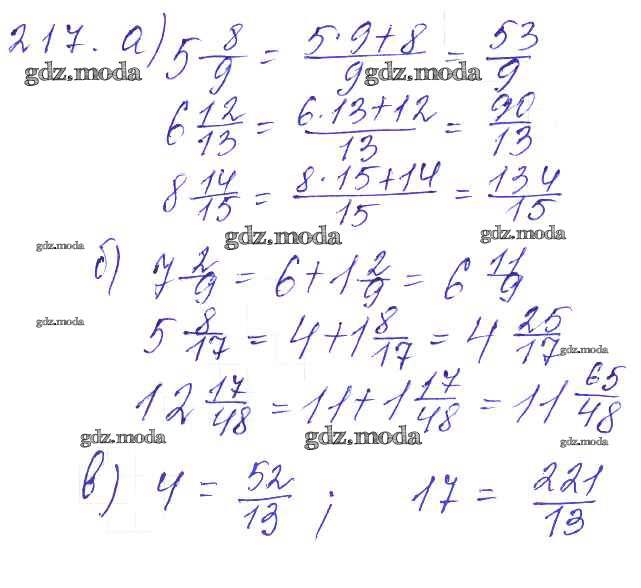 217. а) 5 8/9 = (5·9+8)/9 = 53/9
gdz.moda gdz.moda
6 12/13 = (6·13+12)/13 = 90/13
8 14/15 = (8·15+14)/15 = 134/15
gdz.moda gdz.moda
gdz.moda
б) 7 2/9 = 6+1 2/9 = 6 11/9
gdz.moda
5 8/17 = 4+1 8/17 = 4 25/17
gdz.moda
12 17/48 = 11+1 17/48 = 11 65/48
gdz.moda gdz.moda gdz.moda
в) 4 = 52/13 ; 17 = 221/13